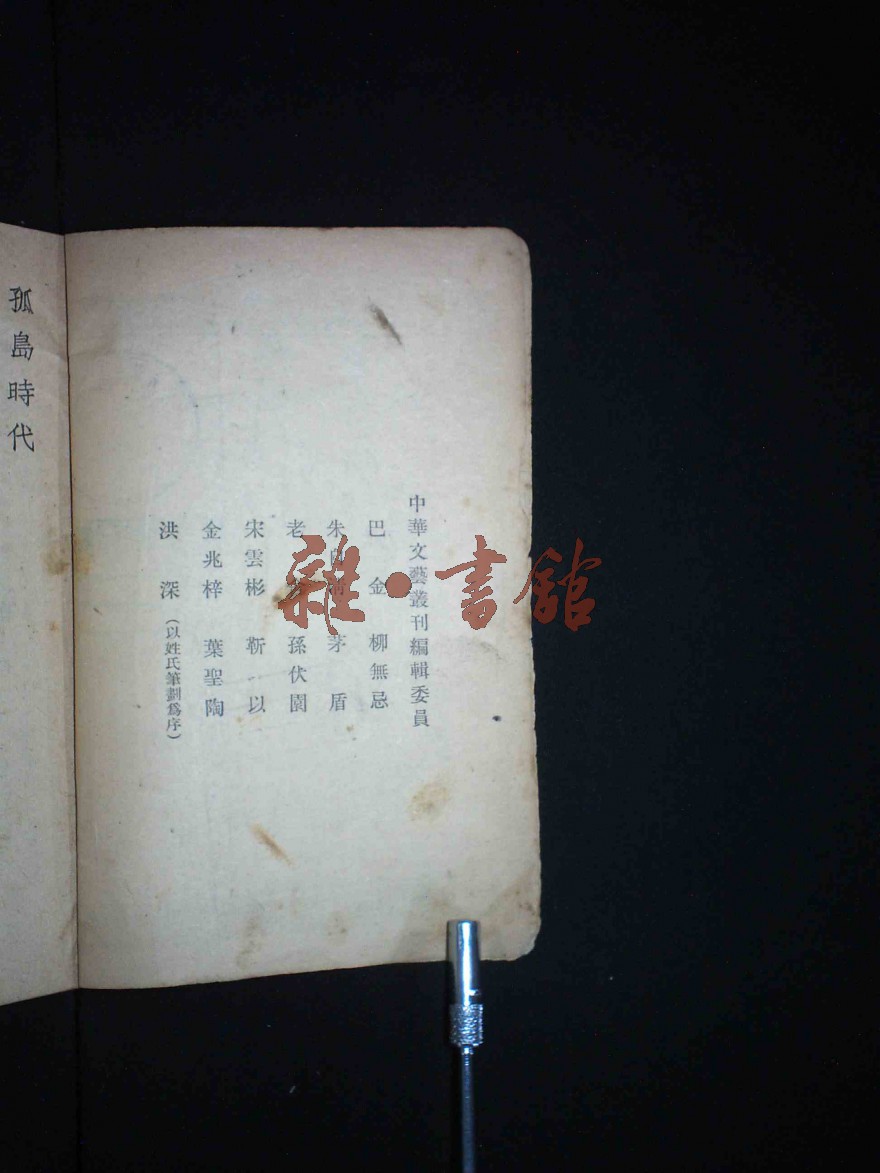 中華文藝叢刊編輯委員
巴金 柳無忌
朱自清 茅盾
老 孫伏園
宋雲彬 靳以
金兆梓 葉聖陶
洪深（以姓氏筆劃爲序）
孤島時代
雜·書館